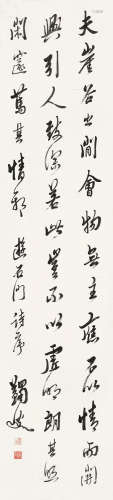 夫崖谷之間會物無主應不以情而開
興引人致深若此豈不以虛明朗其照
閑邃篤其情耶 遊石門詩序